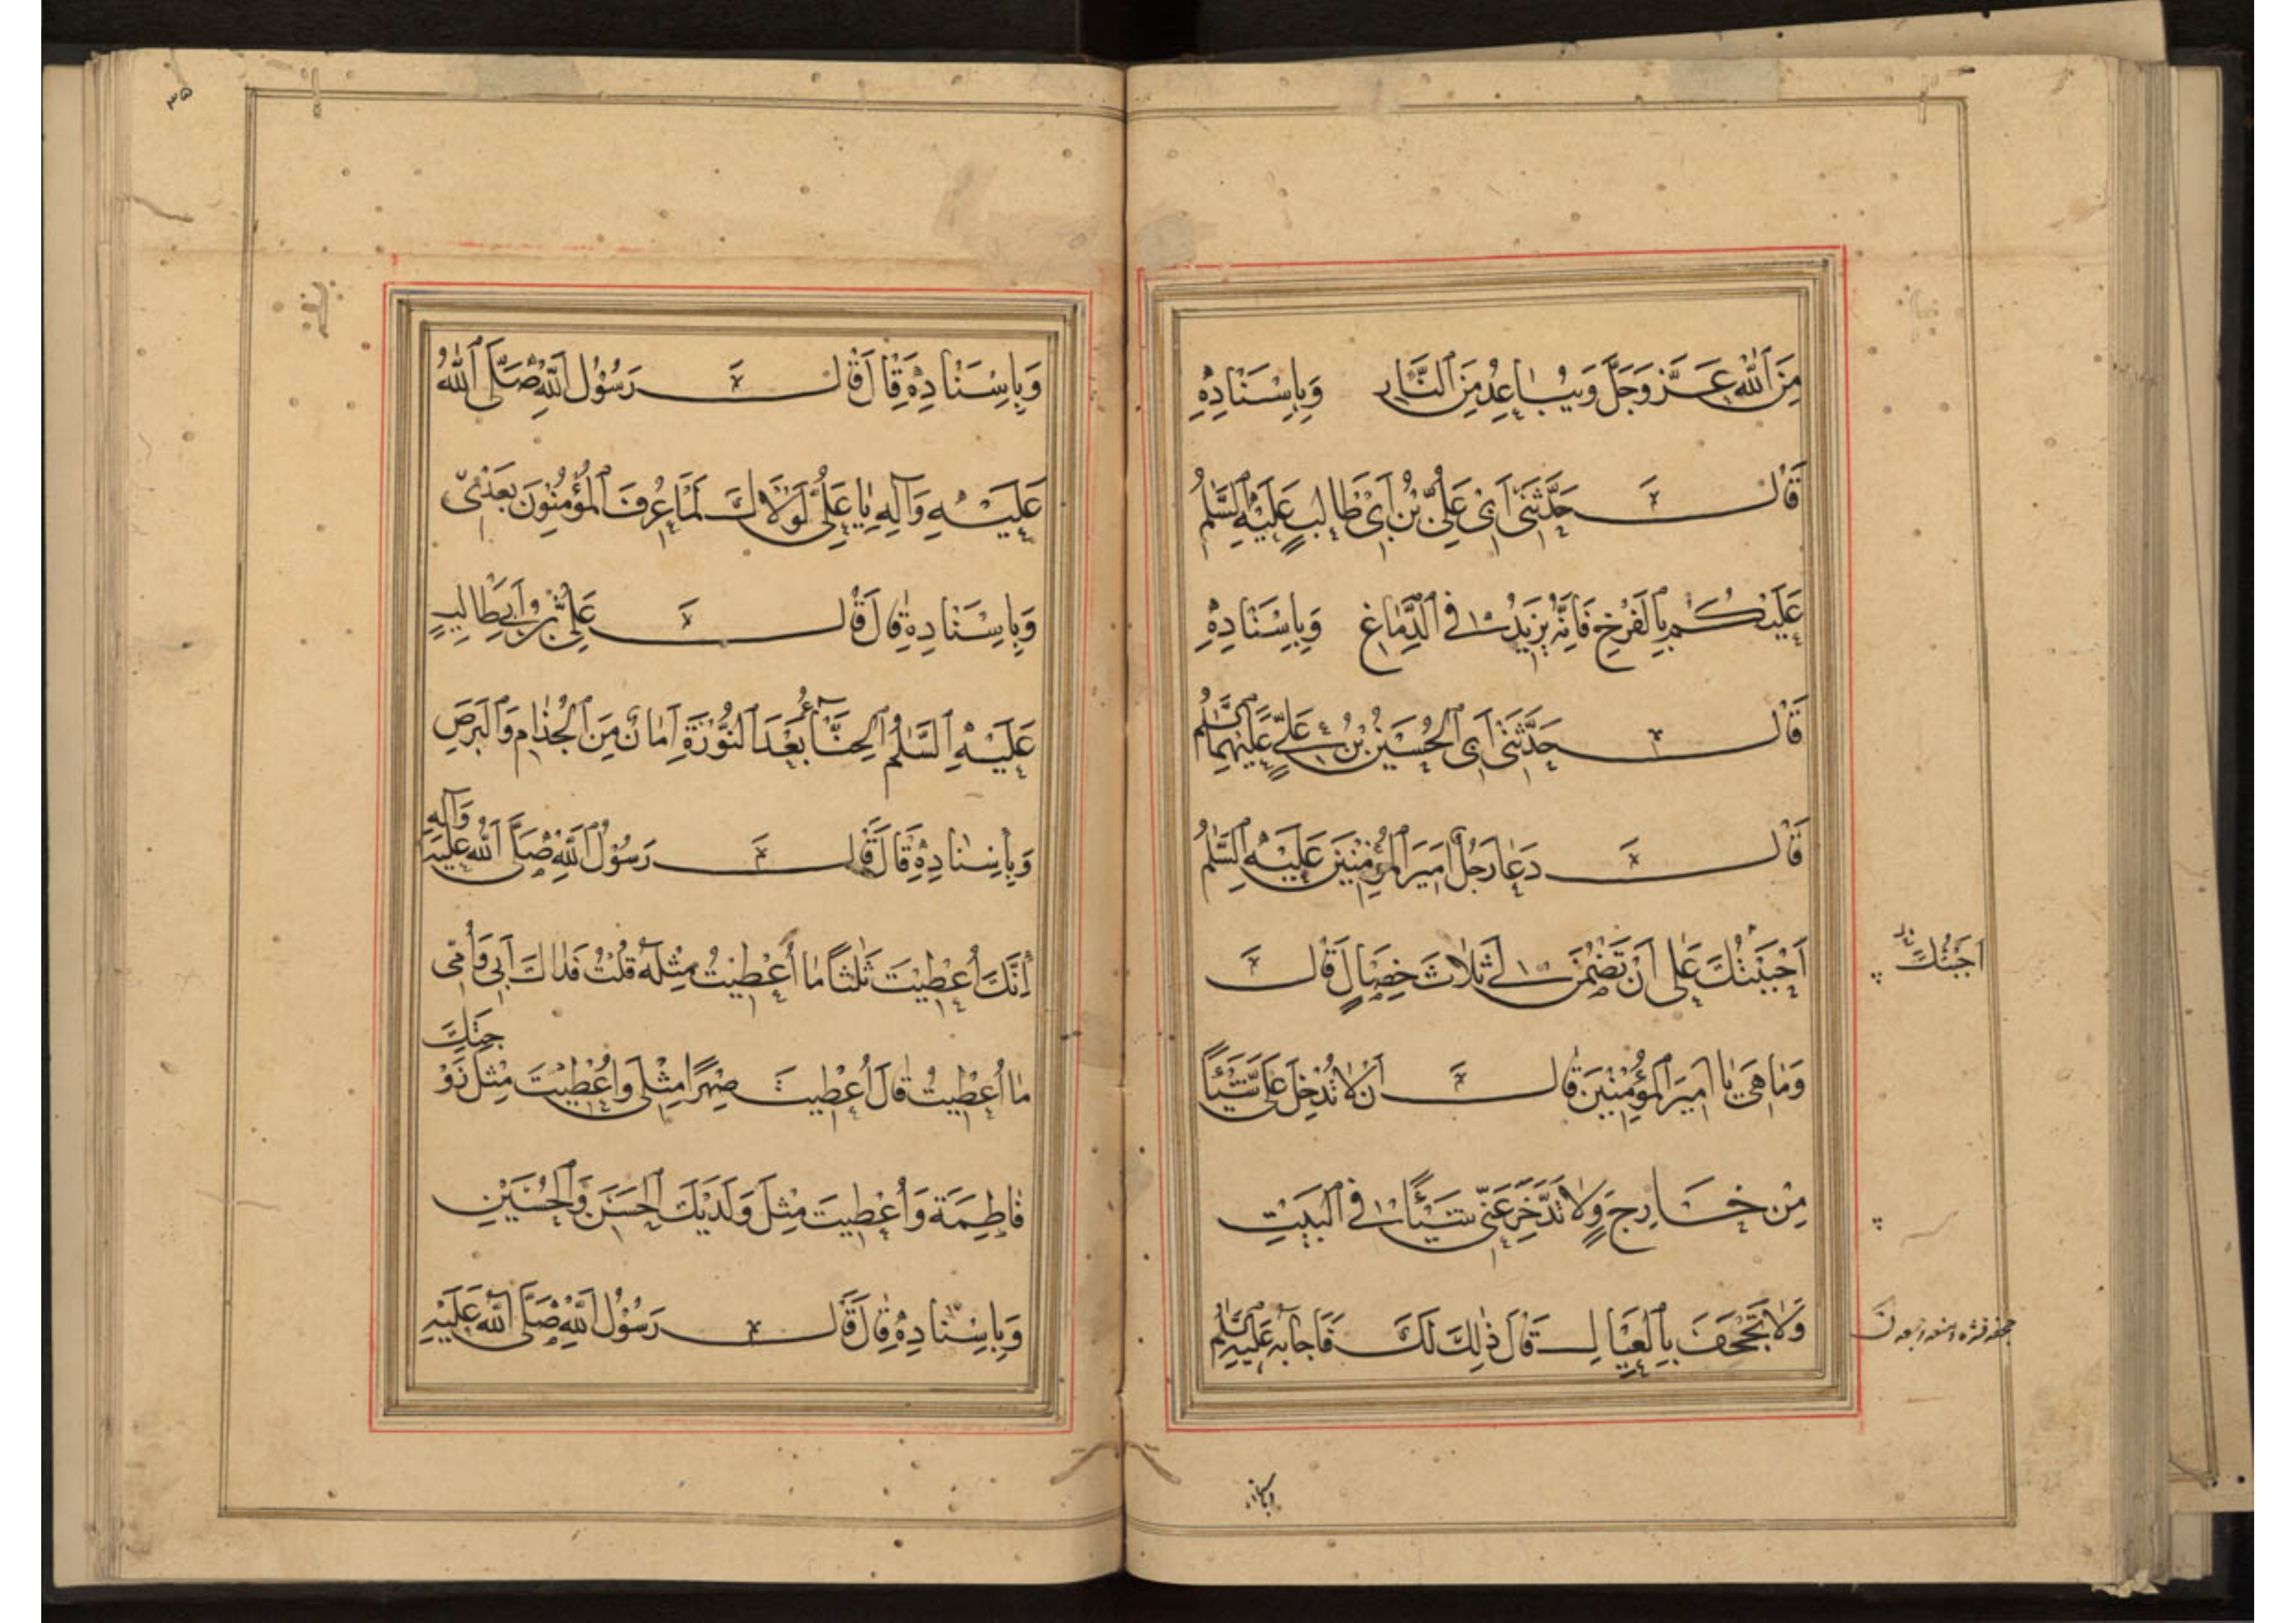 مِنَ اللّٰهِ عَزَّ وَجَلَّ وَيُبَاعِدُ مِنَ النَّارِ وَبِإِسْنَادِهِ
قَالَ حَدَّثَنِى اَبِى عَلِىُّ بْنُ اَبِى طَالِبٍ عَلَيْهِ السَّلٰمُ
عَلَيْكُمْ بِالْفَرْخِ فَاِنَّهُ يَزِيْدُ فِى الدِّمَاغِ وَبِاِسْنَادِهِ
قَالَ حَدَّثَنِى اَبِى الْحُسَيْنُ بْنُ عَلِىٍّ عَلَيْهِمَا السَّلٰمُ
قَالَ دَعَا رَجُلٌ اَمِيرَ الْمُؤْمِنِينَ عَلَيْهِ السَّلٰمُ
اَجَبْتُكَ عَلٰى اَنْ تَضْمَنَ لِى ثَلَاثَ خِصَالٍ قَالَ
اَجَبْتُكَ
وَمَا هِىَ يَا اَمِيرَ الْمُؤْمِنِينَ قَالَ اَنْ لَا تُدْخِلَ عَلَىَّ شَيْئًا
مِنْ خَارِجٍ وَلَا تَدَّخِرَ عَنِّى شَيْئًا فِى الْبَيْتِ
وَلَا تُجْحِفَ بِالْعِيَالِ قَالَ ذٰلِكَ لَكَ فَاَجَابَهُ عَلَيْهِ السَّلٰمُ
وباسناده
٣٥
وَبِاِسْنَادِهِ قَالَ قَالَ رَسُوْلُ اللّٰهِ صَلَّى اللّٰهُ
عَلَيْهِ وَآلِهِ يَا عَلِىُّ لَوْلَاكَ لَمَا عُرِفَ الْمُؤْمِنُوْنَ بَعْدِىْ
وَبِاِسْنَادِهِ قَالَ قَالَ عَلِىُّ بْنُ اَبِى طَالِبٍ
عَلَيْهِ السَّلٰمُ الْحِنَّآءُ بَعْدَ النُّوْرَةِ اَمَانٌ مِنَ الْجُذَامِ وَالْبَرَصِ
وَبِاِسْنَادِهِ قَالَ قَالَ رَسُوْلُ اللّٰهِ صَلَّى اللّٰهُ عَلَيْهِ وَآلِهِ
اِنَّكَ اُعْطِيْتَ ثَلٰثًا مَا اُعْطِيْتُ مِثْلَهُ قُلْتُ فَدَاكَ اَبِى وَاُمِّى
مَا اُعْطِيْتُ قَالَ اُعْطِيتَ صِهْرًا مِثْلِى وَاُعْطِيْتَ مِثْلَ زَوْجَتِكَ
فَاطِمَةَ وَاُعْطِيتَ مِثْلَ وَلَدَيْكَ الْحَسَنِ وَالْحُسَيْنِ
وَبِاِسْنَادِهِ قَالَ قَالَ رَسُوْلُ اللّٰهِ صَلَّى اللّٰهُ عَلَيْهِ